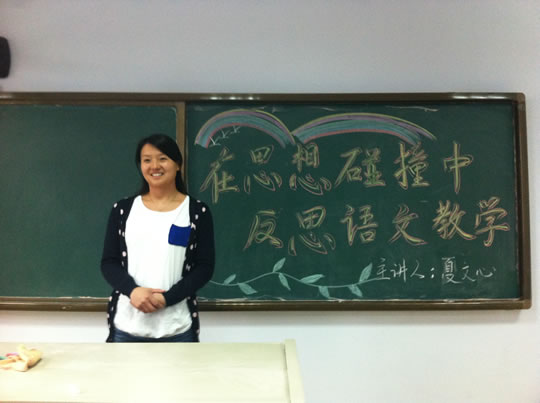 在思想碰撞中
反思语文教学
主讲人：夏文心